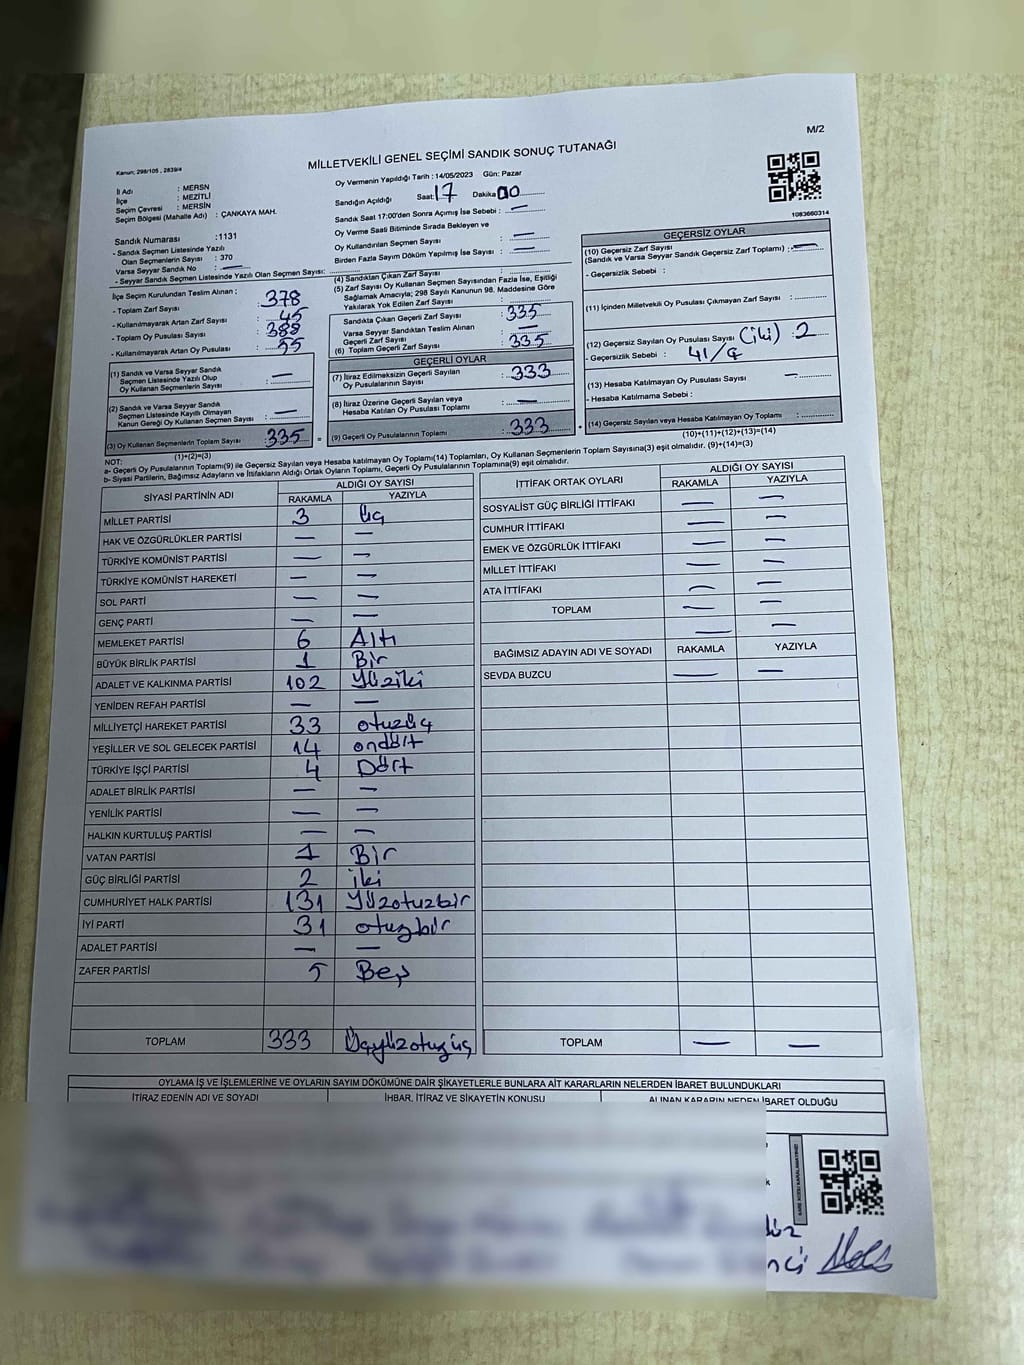 M/2
MİLLETVEKİLİ GENEL SEÇİMİ SANDIK SONUÇ TUTANAĞI
Kanun: 298/105 , 2839/4
İl Adı : MERSN
İlçe : MEZİTLİ
Seçim Çevresi : MERSİN
Seçim Bölgesi (Mahalle Adı) : ÇANKAYA MAH.
Oy Vermenin Yapıldığı Tarih : 14/05/2023 Gün: Pazar
Sandığın Açıldığı Saat: 17 Dakika 00
Sandık Saat 17:00'den Sonra Açılmış İse Sebebi : —
Oy Verme Saati Bitiminde Sırada Bekleyen ve
Oy Kullandırılan Seçmen Sayısı : —
Birden Fazla Sayım Döküm Yapılmış İse Sayısı : —
1083660314
Sandık Numarası : 1131
- Sandık Seçmen Listesinde Yazılı
Olan Seçmenlerin Sayısı : 370
Varsa Seyyar Sandık No : —
- Seyyar Sandık Seçmen Listesinde Yazılı Olan Seçmen Sayısı:
İlçe Seçim Kurulundan Teslim Alınan ;
- Toplam Zarf Sayısı : 378
- Kullanılmayarak Artan Zarf Sayısı : 45
- Toplam Oy Pusulası Sayısı : 388
- Kullanılmayarak Artan Oy Pusulası : 55
(1) Sandık ve Varsa Seyyar Sandık
Seçmen Listesinde Yazılı Olup
Oy Kullanan Seçmenlerin Sayısı : —
(2) Sandık ve Varsa Seyyar Sandık
Seçmen Listesinde Kayıtlı Olmayan
Kanun Gereği Oy Kullanan Seçmen Sayısı : —
(3) Oy Kullanan Seçmenlerin Toplam Sayısı : 335 =
(1)+(2)=(3)
(4) Sandıktan Çıkan Zarf Sayısı :
(5) Zarf Sayısı Oy Kullanan Seçmen Sayısından Fazla İse, Eşitliği
Sağlamak Amacıyla; 298 Sayılı Kanunun 98. Maddesine Göre
Yakılarak Yok Edilen Zarf Sayısı :
Sandıkta Çıkan Geçerli Zarf Sayısı : 335
Varsa Seyyar Sandıktan Teslim Alınan
Geçerli Zarf Sayısı : —
(6) Toplam Geçerli Zarf Sayısı : 335
GEÇERLİ OYLAR
(7) İtiraz Edilmeksizin Geçerli Sayılan
Oy Pusulalarının Sayısı : 333
(8) İtiraz Üzerine Geçerli Sayılan veya
Hesaba Katılan Oy Pusulası Toplamı : —
(9) Geçerli Oy Pusulalarının Toplamı : 333
GEÇERSİZ OYLAR
(10) Geçersiz Zarf Sayısı
(Sandık ve Varsa Seyyar Sandık Geçersiz Zarf Toplamı) : —
- Geçersizlik Sebebi :
(11) İçinden Milletvekili Oy Pusulası Çıkmayan Zarf Sayısı :
(12) Geçersiz Sayılan Oy Pusulası Sayısı : (iki) 2
- Geçersizlik Sebebi : 41/ç
(13) Hesaba Katılmayan Oy Pusulası Sayısı : —
- Hesaba Katılmama Sebebi :
(14) Geçersiz Sayılan veya Hesaba Katılmayan Oy Toplamı :
(10)+(11)+(12)+(13)=(14)
NOT:
a- Geçerli Oy Pusulalarının Toplamı(9) ile Geçersiz Sayılan veya Hesaba katılmayan Oy Toplamı(14) Toplamları, Oy Kullanan Seçmenlerin Toplam Sayısına(3) eşit olmalıdır. (9)+(14)=(3)
b- Siyasi Partilerin, Bağımsız Adayların ve İttifakların Aldığı Ortak Oyların Toplamı, Geçerli Oy Pusulalarının Toplamına(9) eşit olmalıdır.
SİYASİ PARTİNİN ADI ALDIĞI OY SAYISI
RAKAMLA YAZIYLA
MİLLET PARTİSİ 3 Üç
HAK VE ÖZGÜRLÜKLER PARTİSİ — —
TÜRKİYE KOMÜNİST PARTİSİ — —
TÜRKİYE KOMÜNİST HAREKETİ — —
SOL PARTİ — —
GENÇ PARTİ — —
MEMLEKET PARTİSİ 6 Altı
BÜYÜK BİRLİK PARTİSİ 1 Bir
ADALET VE KALKINMA PARTİSİ 102 Yüziki
YENİDEN REFAH PARTİSİ — —
MİLLİYETÇİ HAREKET PARTİSİ 33 otuzüç
YEŞİLLER VE SOL GELECEK PARTİSİ 14 ondört
TÜRKİYE İŞÇİ PARTİSİ 4 Dört
ADALET BİRLİK PARTİSİ — —
YENİLİK PARTİSİ — —
HALKIN KURTULUŞ PARTİSİ — —
VATAN PARTİSİ 1 Bir
GÜÇ BİRLİĞİ PARTİSİ 2 iki
CUMHURİYET HALK PARTİSİ 131 Yüzotuzbir
İYİ PARTİ 31 otuzbir
ADALET PARTİSİ — —
ZAFER PARTİSİ 5 Beş
TOPLAM 333 Üçyüzotuzüç
İTTİFAK ORTAK OYLARI ALDIĞI OY SAYISI
RAKAMLA YAZIYLA
SOSYALİST GÜÇ BİRLİĞİ İTTİFAKI — —
CUMHUR İTTİFAKI — —
EMEK VE ÖZGÜRLÜK İTTİFAKI — —
MİLLET İTTİFAKI — —
ATA İTTİFAKI — —
TOPLAM — —
— —
BAĞIMSIZ ADAYIN ADI VE SOYADI RAKAMLA YAZIYLA
SEVDA BUZCU — —
TOPLAM — —
OYLAMA İŞ VE İŞLEMLERİNE VE OYLARIN SAYIM DÖKÜMÜNE DAİR ŞİKAYETLERLE BUNLARA AİT KARARLARIN NELERDEN İBARET BULUNDUKLARI
İTİRAZ EDENİN ADI VE SOYADI İHBAR, İTİRAZ VE ŞİKAYETİN KONUSU ALINAN KARARIN NEDEN İBARET OLDUĞU